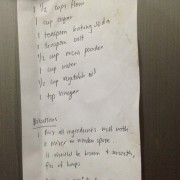 1 1/2 cups flour
1 cup sugar
1 teaspoon baking soda
1 teaspoon salt
1/2 cup cocoa powder
1 cup water
1/2 cup vegetable oil
1 tsp vinegar
Directions
1 Mix all ingredients and with
a mixer/or wooden spoon
It should be brown & smooth,
free of lumps